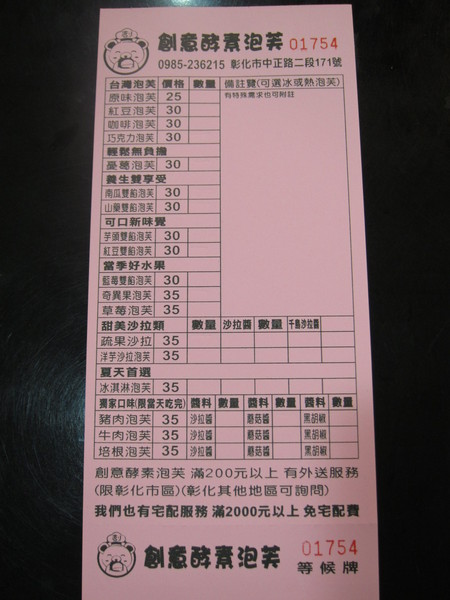 創意酵素泡芙 01754
0985-236215 彰化市中正路二段171號
台灣泡芙 價格 數量 備註覽(可選冰或熱泡芙)
原味泡芙 25 有特殊需求也可附註
紅豆泡芙 30
咖啡泡芙 30
巧克力泡芙 30
輕鬆無負擔
憂葛泡芙 30
養生雙享受
南瓜雙餡泡芙 30
山藥雙餡泡芙 30
可口新味覺
芋頭雙餡泡芙 30
紅豆雙餡泡芙 30
當季好水果
藍莓雙餡泡芙 30
奇異果泡芙 35
草莓泡芙 35
甜美沙拉類 數量 沙拉醬 數量 千島沙拉醬
疏果沙拉 35
洋芋沙拉泡芙 35
夏天首選
冰淇淋泡芙 35
獨家口味(限當天吃完) 醬料 數量 醬料 數量 醬料 數量
豬肉泡芙 35 沙拉醬 蘑菇醬 黑胡椒
牛肉泡芙 35 沙拉醬 蘑菇醬 黑胡椒
培根泡芙 35 沙拉醬 蘑菇醬 黑胡椒
創意酵素泡芙 滿200元以上 有外送服務
(限彰化市區)(彰化其他地區可詢問)
我們也有宅配服務 滿2000元以上 免宅配費
創意酵素泡芙 01754
等候牌